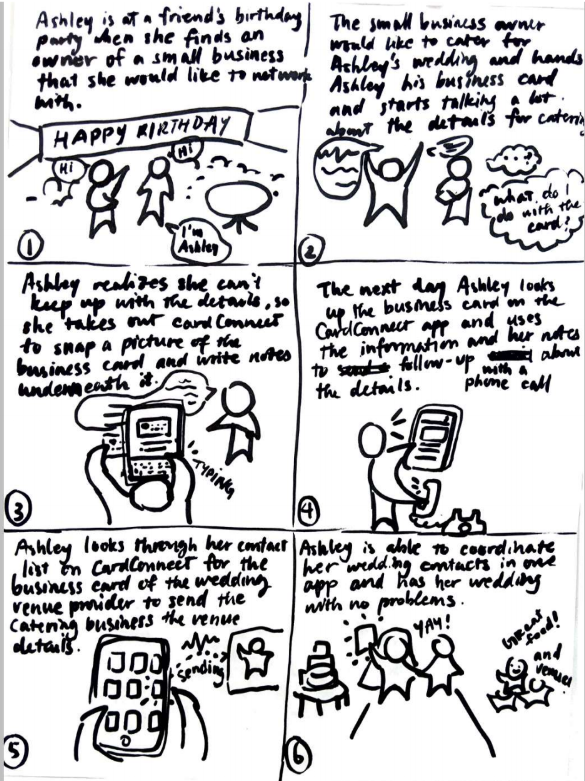 Ashley is at a friend's birthday
party when she finds an
owner of a small business
that she would like to network
with.
HAPPY BIRTHDAY
Hi
Hi
I'm
Ashley
1
The small business owner
would like to cater for
Ashley's wedding and hands
Ashley his business card
and starts talking a lot
about the details for catering
...?
what do I
do with the
card?
2
Ashley realizes she can't
keep up with the details, so
she takes out cardConnect
to snap a picture of the
business card and write notes
underneath it.
TYPING
3
The next day Ashley looks
up the business card on the
CardConnect app and uses
the information and her notes
to follow-up with a about
the details. phone call
4
Ashley looks through her contact
list on CardConnect for the
business card of the wedding
venue provider to send the
catering business the venue
details.
sending
5
Ashley is able to coordinate
her wedding contacts in one
app and has her wedding
with no problems.
YAY!
Great
food!
and
venue!
6